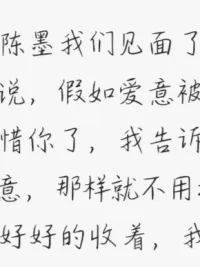 陈墨我们见面了
说，假如爱意被
惜你了，我告诉
意，那样就不用
好好的收着，我